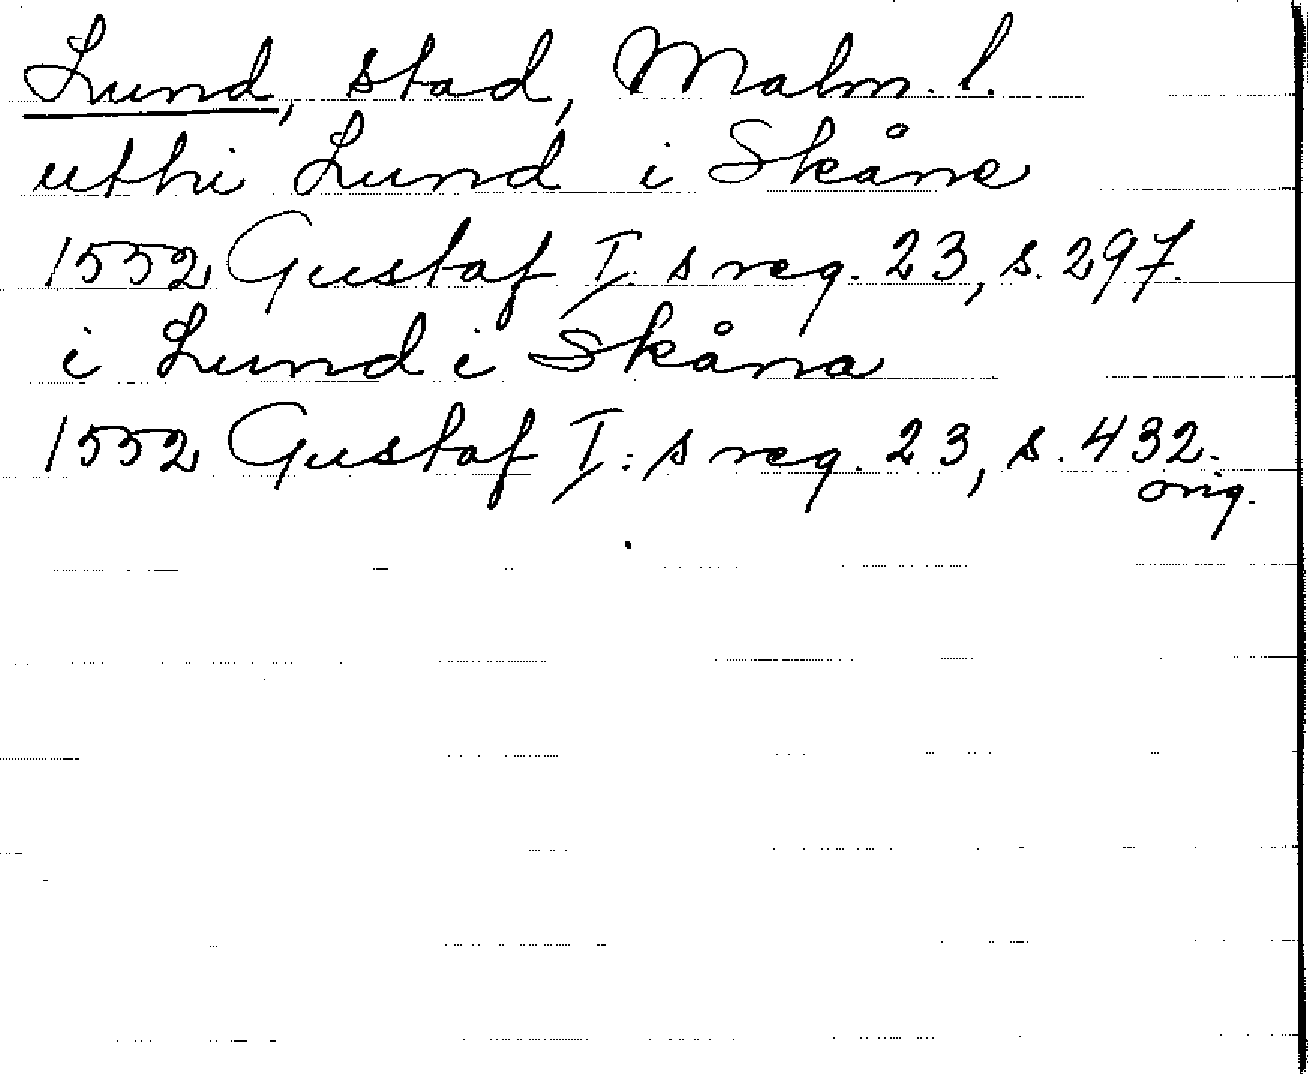 Lund, stad, Malm. l.
uthi Lund i Skåne
1552 Gustaf I:s reg. 23, s. 297.
i Lund i Skåna
1552 Gustaf I:s reg. 23, s. 432.
orig.